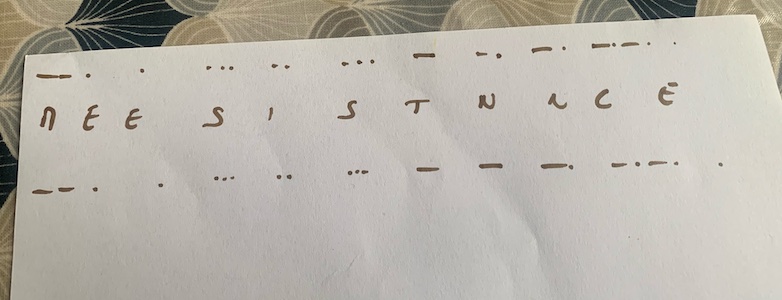 —— . . ... .. ... — —. —. —.—. .
N E E S I S T N N C E
—— . . ... .. ... — — —. —.—. .